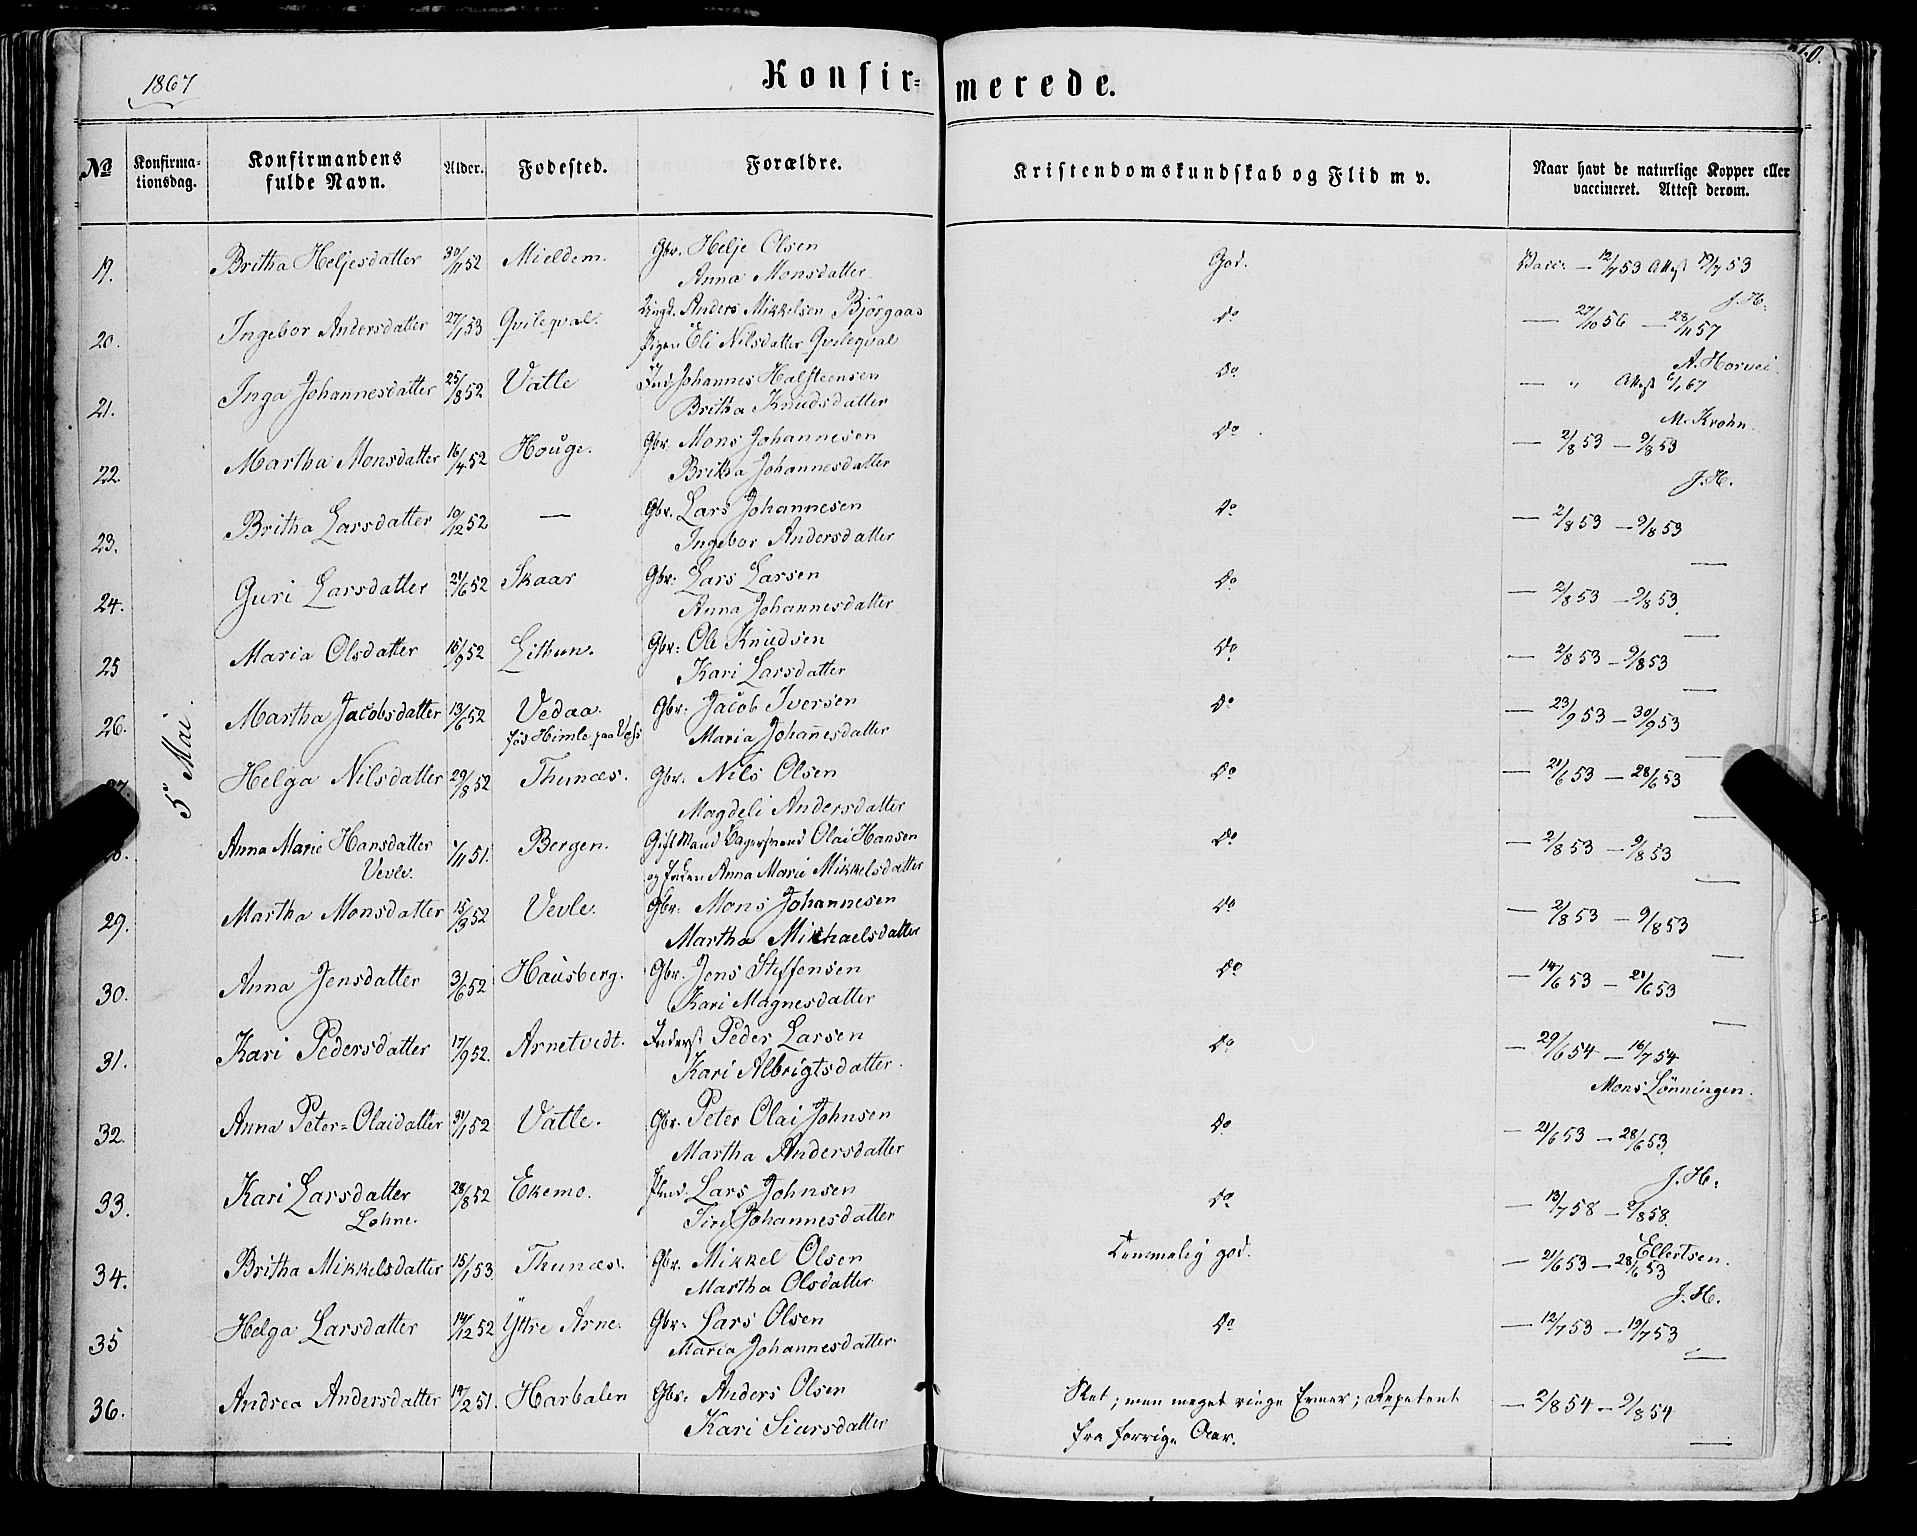 1867
Konfir= merede.
No Konfirma-tionsdag. Konfirmandens fulde Navn. Alder. Fødested. Forældre. Kristendomskundskab og Flid m v. Naar havt de naturlige Kopper eller vaccineret. Attest derom.
5 Mai.
19. Britha Heljesdatter 30/11 52 Mieldem. Gbr. Helje Olsen God. Vacc: — 12/7 53 Attest 19/7 53
Anna Monsdatter J.H.
20. Ingebor Andersdatter 27/1 53 Qvileqval. Ungk. Anders Mikkelsen Björgaas do — 27/10 56 — 28/11 57
Pigen Eli Nilsdatter Qvileqval A. Horvei.
21. Inga Johannesdatter 25/8 52 Vatle Ind. Johannes Halsteensen do — " Attest 6/1 67
Britha Knudsdatter M. Krohn.
22. Martha Monsdatter 16/4 52 Houge. Gbr. Mons Johannesen do — 2/8 53 — 9/8 53
Britha Johannesdatter J.H.
23. Britha Larsdatter 10/12 52 — Gbr. Lars Johannesen do — 2/8 53 — 9/8 53
Ingebor Andersdatter —
24. Guri Larsdatter 21/6 52 Skaar Gbr: Lars Larsen do — 2/8 53 — 9/8 53.
Anna Johannesdatter —
25 Maria Olsdatter 15/9 52 Litlun. Gbr: Ole Knudsen do — 2/8 53 — 9/8 53
Kari Larsdatter —
26. Martha Jacobsdatter 13/6 52 Vedaa. Gbr: Jacob Iversen do — 23/9 53 — 30/9 53
fød Himle paa Voss Maria Johannesdatter —
27. Helga Nilsdatter 29/8 52 Thunæs. Gbr. Nils Olsen do — 21/6 53 — 28/6 53
Magdeli Andersdatter —
28. Anna Marie Hansdatter 7/11 51. Bergen. Gift Mand Olai Hansen do — 2/8 53 — 9/8 53
Vevle. og Anna Marie Mikkelsdatter —
29. Martha Monsdatter 15/3 52 Vevle. Gbr: Mons Johannesen do — 2/8 53 — 9/8 53
Martha Michaelsdatter —
30. Anna Jensdatter 3/6 52 Hausberg. Gbr. Jens Steffensen do — 14/6 53 — 21/6 53
Kari Magnesdatter —
31. Kari Pedersdatter 17/9 52. Arnetvedt. Inderst Peder Larsen do — 29/6 54 — 16/7 54
Kari Albrigtsdatter. Mons Lönningen.
32. Anna Peter=Olaidatter 31/1 52 Vatle. Gbr. Peter Olai Johnsen do — 21/6 53 — 28/6 53.
Martha Andersdatter J.H.
33. Kari Larsdatter 28/8 52 Ekemo. Lars Johnsen do — 13/7 58 — 2/8 58.
Lohne. Siri Johannesdatter Ellertsen.
34. Britha Mikkelsdatter 15/1 53. Thunæs. Gbr. Mikkel Olsen Temmelig god. — 21/6 53 — 28/6 53
Martha Olsdatter J.H.
35 Helga Larsdatter 14/12 52 Yttre Arne. Gbr. Lars Olsen do — 12/7 53 — 19/7 53
Maria Johannesdatter —
36. Andrea Andersdatter 14/2 51. Harbalen Gbr. Anders Olsen Slet; men meget ringe Evner; Repetent — 2/8 54 — 9/8 54
Kari Siursdatter fra forrige Aar. —